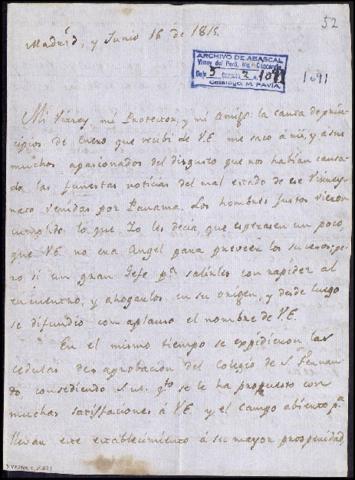 52
Madrid, y Junio 16 de 1815.
ARCHIVO DE ABASCAL
Virrey del Perú, Mq. Concordia
5 2 1091
Catálogo M. PAVIA
1091
Mi Virrey, mi Protector, y mi Amigo: la carta de prin-
cipios de Enero que recibi de V.E. me saco a mi, y a sus
muchos apasionados del disgusto que nos habian causa-
do las funestas noticias del mal estado de ese Virrey-
nato venidas por Panama. Los hombres justos vieron
cumplido lo que Yo les decia, que esperasen un poco,
que V.E. no era Angel para preveer los sucesos, pe-
ro si un gran Gefe pa. salirles con rapidez al
encuentro, y ahogarlos en su origen, y desde luego
se difundio con aplauso el nombre de V.E.
En el mismo tiempo se expidieron las
cedulas de aprobacion del Colegio de S. Fernan-
do concediendo S.M. qto. se le ha propuesto con
muchas satisfacciones á V.E. y el campo abierto pa.
llevar este establecimiento á su mayor prosperidad